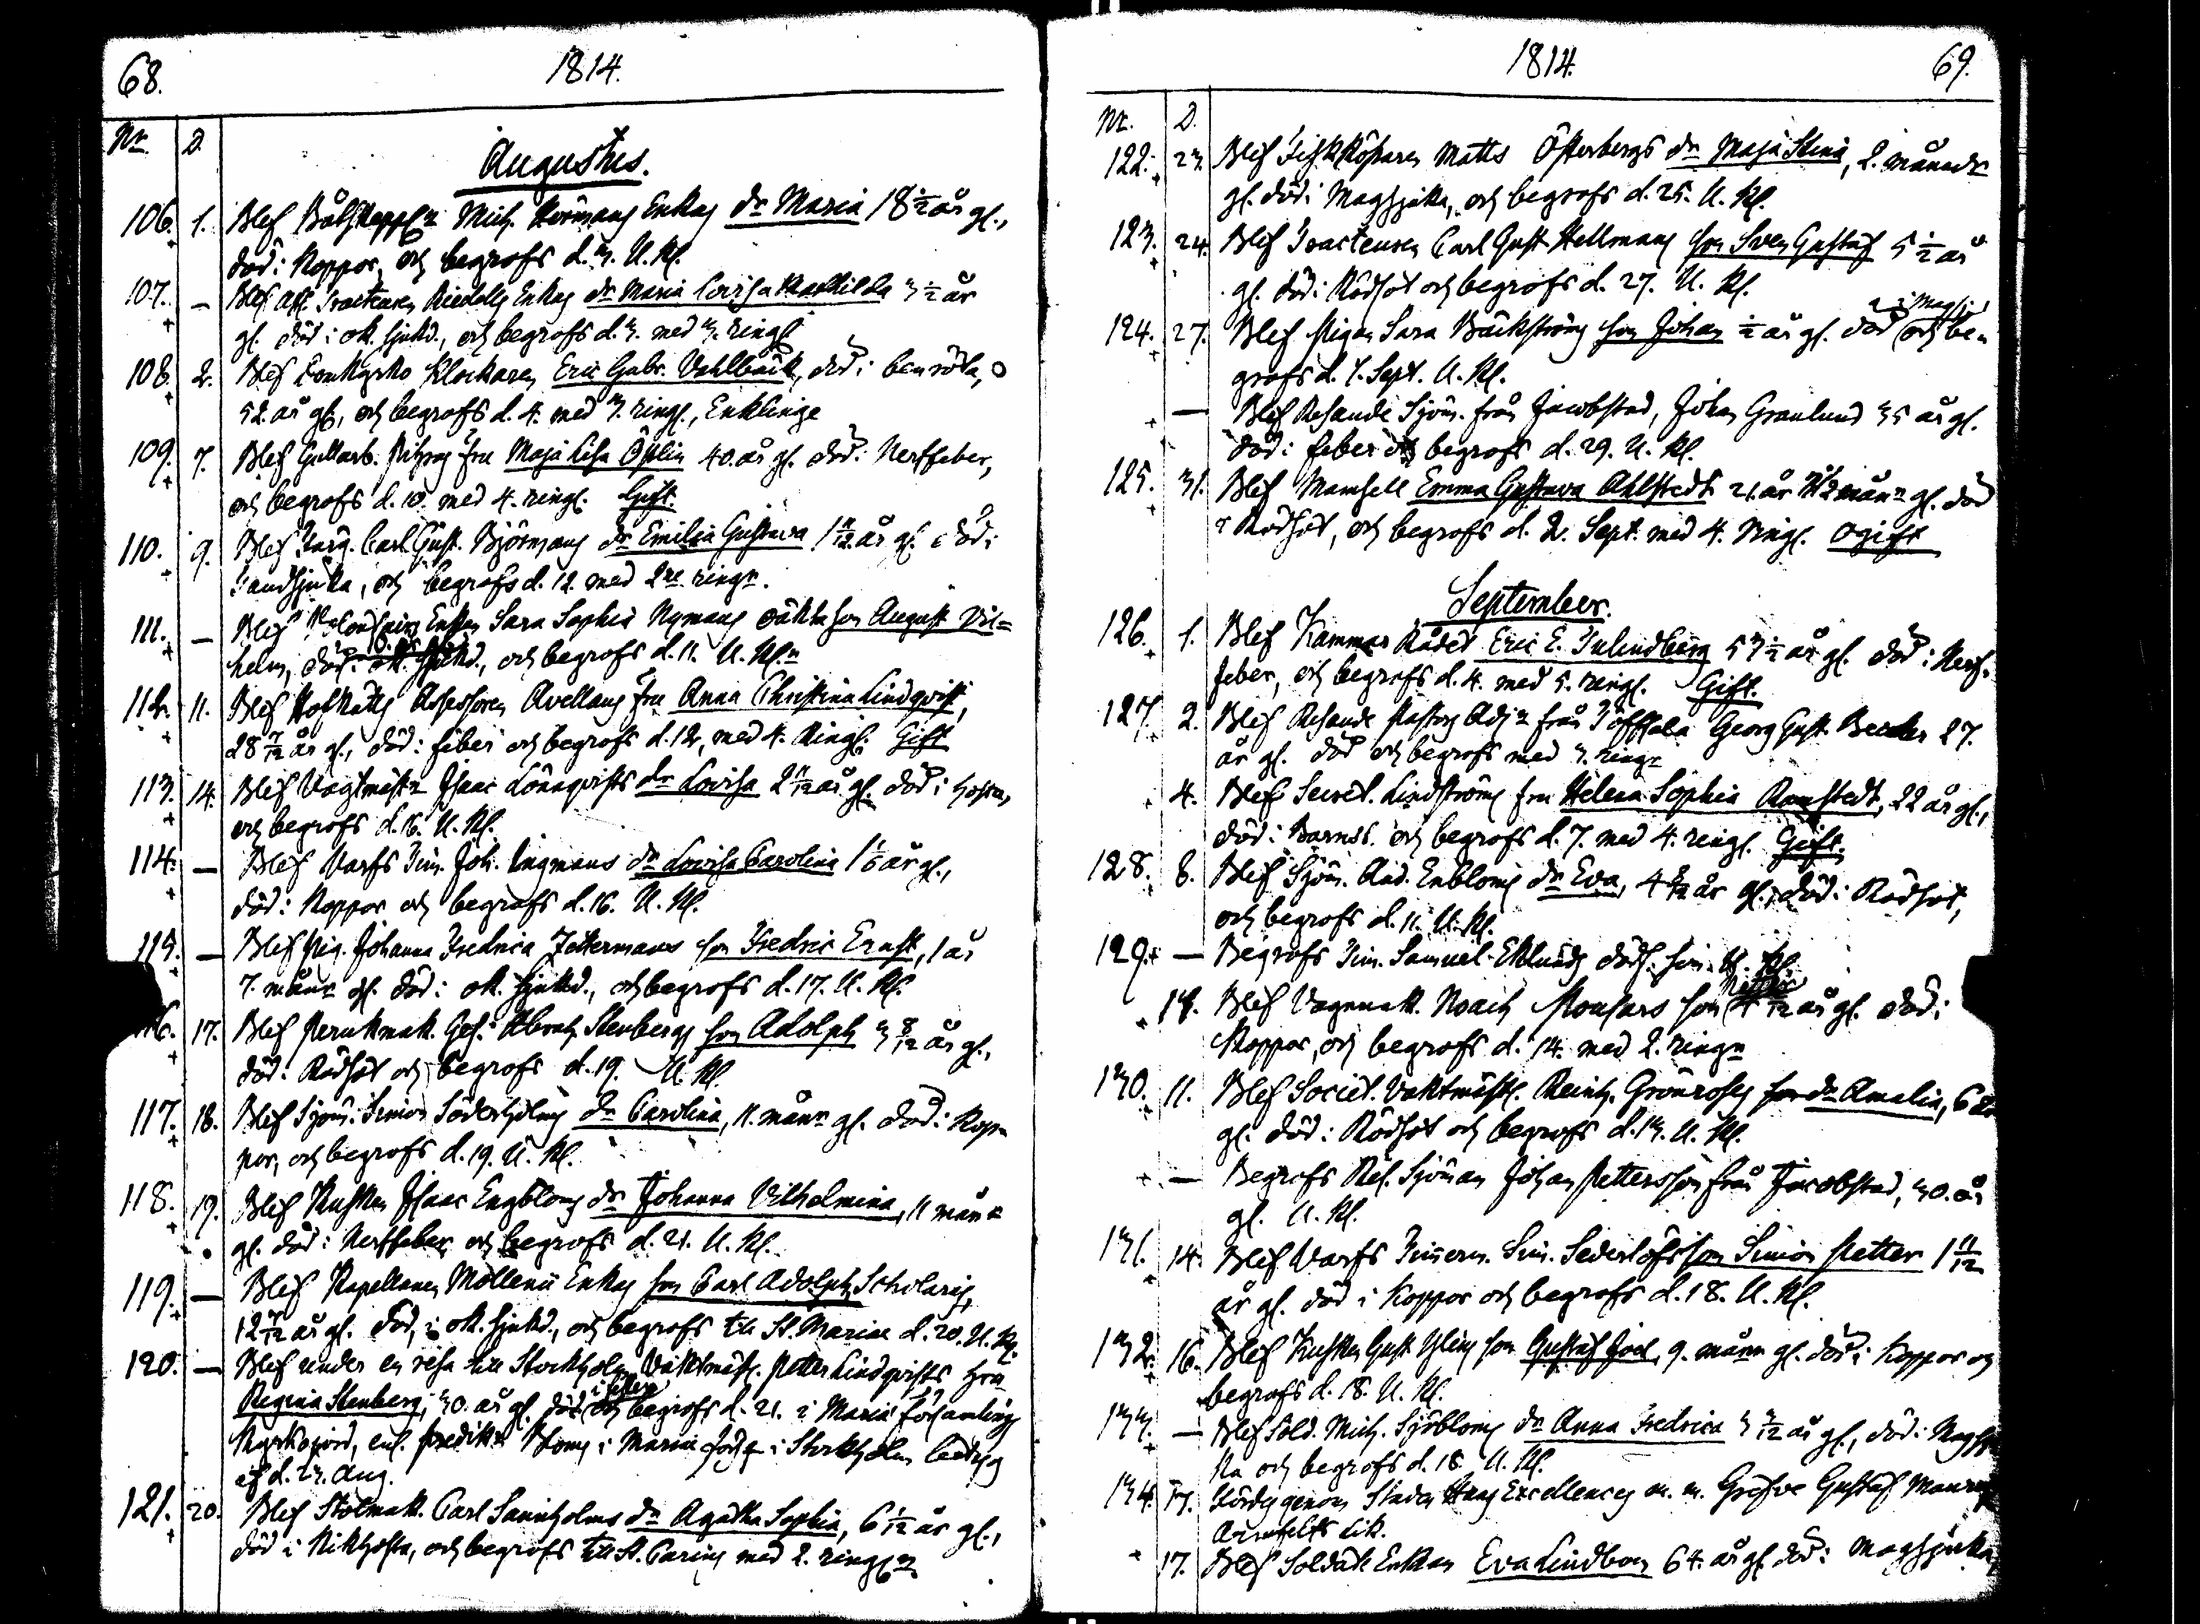 68.
1814.
Nr. D.
Augustus.
106. 1. Blef Mich. Enkas dr Maria 18 1/2 år gl.,
död i Koppor, och begrofs d. 3. U. Kl.
107. — Blef Enkas dr Maria Lovisa Mathilda 3 1/2 år
gl. död i ok. sjukd., och begrofs d. 3. med 3. ringr
108. 2. Blef Domkyrko Klockaren Eric Gabr. Vahlbäck, död i benröta,
52. år gl., och begrofs d. 4. med 3. ringr., Enklinge
109. 7. Blef Gullarb. fru Maja Lisa Öhlin 40. år gl. död i Nerffeber,
och begrofs d. 10. med 4. ringr. Gift.
110. 9. Blef Färg. Carl Gust. Björmans dr Emilia Gustava 1 11/12 år gl. död i
Tandsjuka, och begrofs d. 12. med 2ne ringr.
111. — Blef Enkan Sara Sophia Nymans oäkta son August Vil=
helm, död i ok. sjukd., och begrofs d. 11. U. Kl.
112. 11. Blef HofRätts Assessoren Avellans fru Anna Christina Lindqvist,
28 7/12 år gl., död i feber och begrofs d. 12, med 4. Ringr. Gift
113. 14. Blef Vagtmästr Isaac Lönnqvists dr Lovisa 2 11/12 år gl. död i hosta,
och begrofs d. 16. U. Kl.
114. — Blef Varfs Tim. Joh. Ingmans dr Lovisa Carolina 1 1/6 år gl.,
död i Koppor och begrofs d. 16. U. Kl.
115. — Blef Pig. Johanna Fredrica Zettermans son Fredric Ernst, 1 år
7. månr gl. död i ok. sjukd., och begrofs d. 17. U. Kl.
116. 17. Blef Perukmak. Ges. Abrah. Stenbergs son Adolph 3 8/12 år gl.,
död i Rödsot och begrofs d. 19. U. Kl.
117. 18. Blef Sjöm. Simon Söderholms dr Carolina, 11. månr gl. död i Kop=
por, och begrofs d. 19. U. Kl.
118. 19. Blef Kusken Isaac Engbloms dr Johanna Vilhelmina, 11 månr
gl. död i Nerffeber och begrofs d. 21. U. Kl.
119. — Blef Kapellanen Mollerii Enkas son Carl Adolph Scholaris,
12 7/12 år gl. död, i ok. sjukd., och begrofs till St. Mariae d. 20. U. Kl.
120. — Blef under en resa till Stockholm Vaktmäst. Petter Lindqvists hru
Regina Stenberg, 30. år gl. död i feber och begrofs d. 21. i Maria församlings
Kyrkogård, enl. i Maria förs. i Stockholm betyg
af d. 23. Aug.
121. 20. Blef Stolmak. Carl Sannholms dr Agatha Sophia, 6 1/12 år gl.,
död i Kikhosta, och begrofs till St. Carins med 2. ringr
1814.
69.
Nr. D.
122. 23. Blef FiskKöparen Matts Österbergs dr Maja Stina, 2. månadr
gl. död i Magsjuka, och begrofs d. 25. U. Kl.
123. 24. Blef Tracteuren Carl Gust. Hellmans son Sven Gustaf 5 1/2 år
gl. död i Rödsot och begrofs d. 27. U. Kl.
124. 27. Blef Pigan Sara Bäckströms son Johan 1/2 år gl. död i Magsj. och be=
grofs d. 1. Sept. U. Kl.
— Blef Resande Sjöm. från Jacobstad, Johan Granlund 35 år gl.
död i feber och begrofs d. 29. U. Kl.
125. 31. Blef Mamsell Emma Gustava Ahlstedt 21. år månr gl. död
i Rödsot, och begrofs d. 2. Sept. med 4. Ringr. ogift
September.
126. 1. Blef Kammar Rådet Eric E. Julindberg 53 1/2 år gl. död i Nerf=
feber, och begrofs d. 4. med 5. ringr. Gift.
127. 2. Blef Resande Pastors Adjr från Georg Gust. Becker 27.
år gl. död och begrofs med 3. ringr
4. Blef Secret. Lindströms fru Helena Sophia Ramstedt, 22 år gl.,
död i Barnss. och begrofs d. 7. med 4. ringr. Gift.
128. 8. Blef Sjöm. And. Enbloms dr Eva, 4 8/12 år gl., död i Rödsot,
och begrofs d. 11. U. Kl.
129. — Begrofs Tim. Samuel Eklunds dödf. son. U. Kl.
14. Blef Vagnmak. Noach son Petter 4 /12 år gl. död i
Koppor, och begrofs d. 14. med 2. ringr
130. 11. Blef Societ. Vaktmäst. Reinh. Grönroos dr Amalia, 6 år
gl. död i Rödsot och begrofs d. 13. U. Kl.
— Begrofs Res. Sjöman Johan Pettersson från Jacobstad, 30. år
gl. U. Kl.
131. 14. Blef Varfs Timerm. Sim. Sederlöfs son Simon Petter 1 11/12
år gl. död i Koppor och begrofs d. 18. U. Kl.
132. 16. Blef Kusken Gust. son Gustaf Joel, 9. månr gl. död i Koppor och
begrofs d. 18. U. Kl.
133. — Blef Sold. Mich. Sjöbloms dr Anna Fredrica 3 3/12 år gl., död i Magsju
ka och begrofs d. 18. U. Kl.
134. 17. genom Staden Hans Excellences m. m. Grefve Gustaf Mauritz
Armfelts Lik.
17. Blef Soldats Enkan Eva Lindbom 64. år gl. död i Magsjuka,